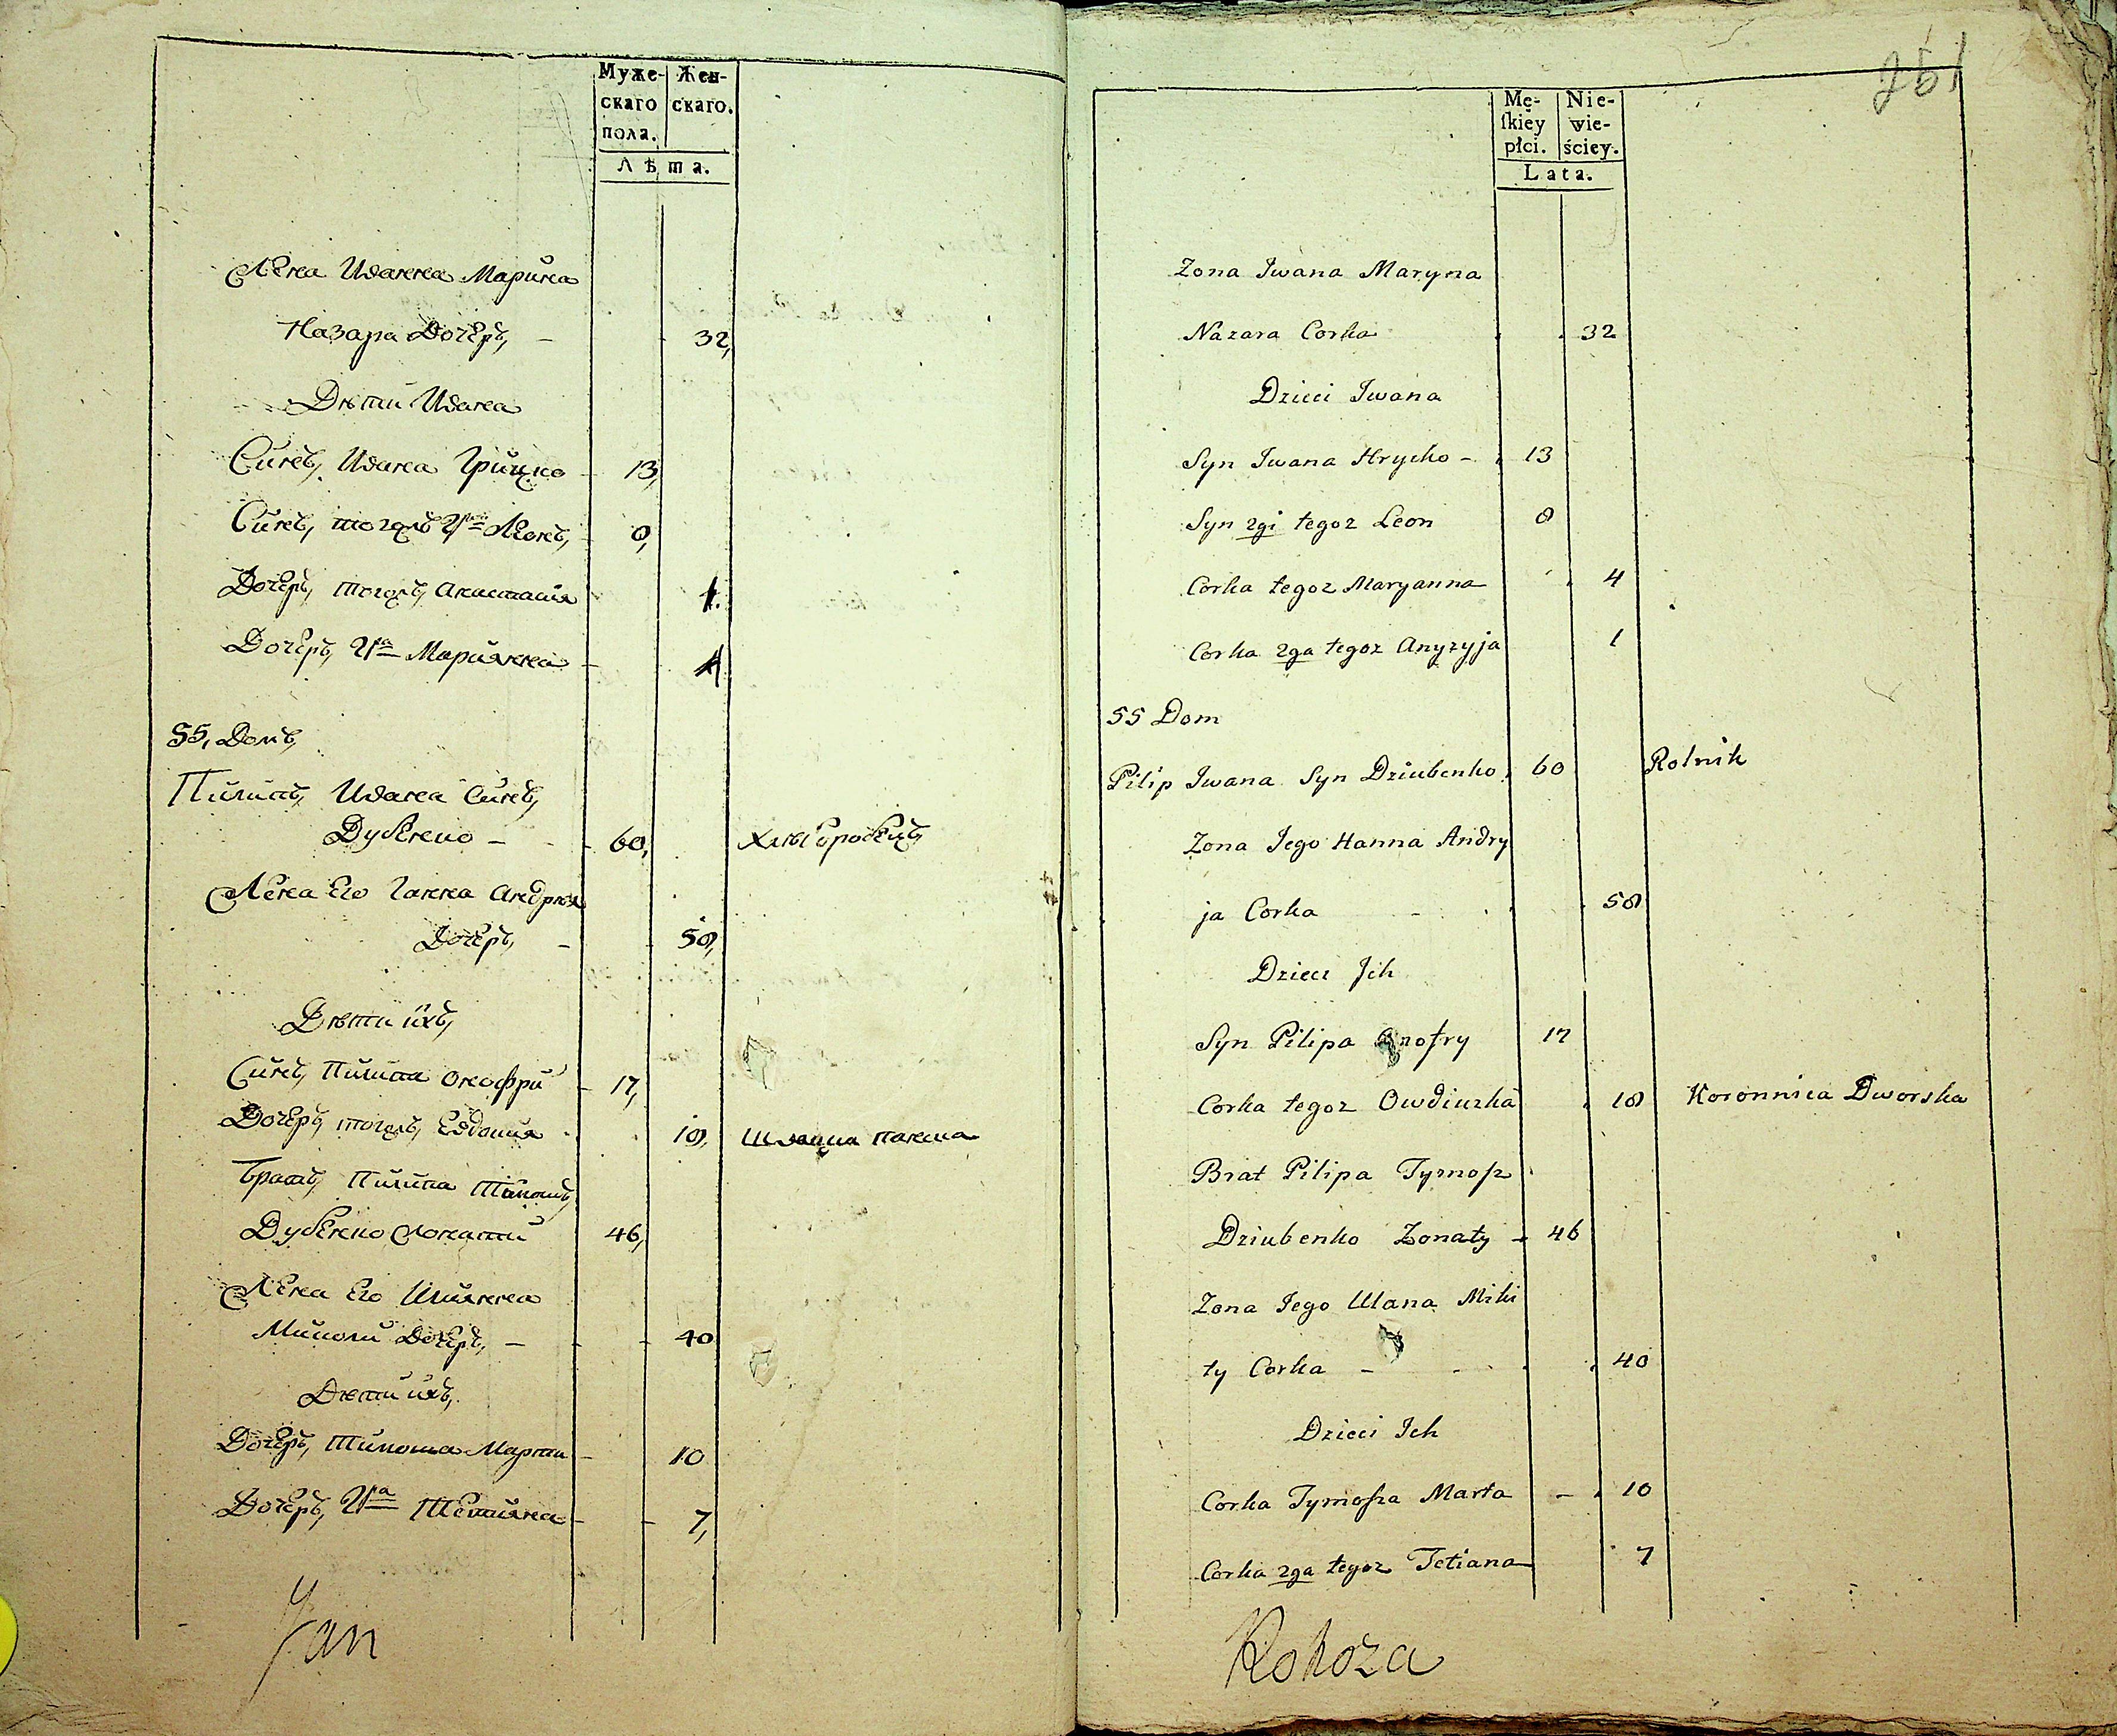 Муже-
скаго
пола.
Жен-
скаго.
Лѣта.
Жена Ивана Марина
Назара Дочеръ, - 32,
Дѣти Ивана
Синъ, Ивана Грицко - 13,
Синъ, тогожъ 2й Леонъ, 8,
Дочеръ, тогожъ, Анастасія 1.
Дочеръ, 2я Маріянна - 4
55, Домъ,
Пилипъ, Ивана Синъ,
Дубенко - 60, Хлѣборобецъ,
Жена Его Ганна Андрѣя
Дочеръ, - 58,
Дѣти ихъ,
Синъ, Пилипа Онофрій - 17,
Дочеръ, тогожъ, Евдокия 18,
Братъ, Пилипа Тимошъ,
Дубенко Жонатий 46,
Жена Его Улиянна
Микити Дочеръ, - 40
Дѣти ихъ,
Дочеръ, Тимоша Марта - 10
Дочеръ, 2я Тетияна - 7,
Jan
251
Mę-
ſkiey
płci.
Nie-
wie-
ściey.
Lata.
Zona Jwana Maryna
Nazara Corka 32
Dzieci Jwana
Syn Jwana Hrycko - 13
Syn 2gi tegoz Leon 8
Corka tegoz Maryanna 4
Corka 2ga tegoz Anyzyja 1
55 Dom
Pilip Jwana Syn Dziubenko 60 Rolnik
Zona Jego Hanna Andry
ja Corka - 58
Dzieci Jch
Syn Pilipa Onofry 17
Corka tegoz Owdiuzka 18 Koronnica Dworska
Brat Pilipa Tymoſz
Dziubenko Zonaty - 46
Zona Jego Ulana Miki
ty Corka - 40
Dzieci Jch
Corka Tymoſza Marta - 10
Corka 2ga tegoz Tetiana 7
Rohoza